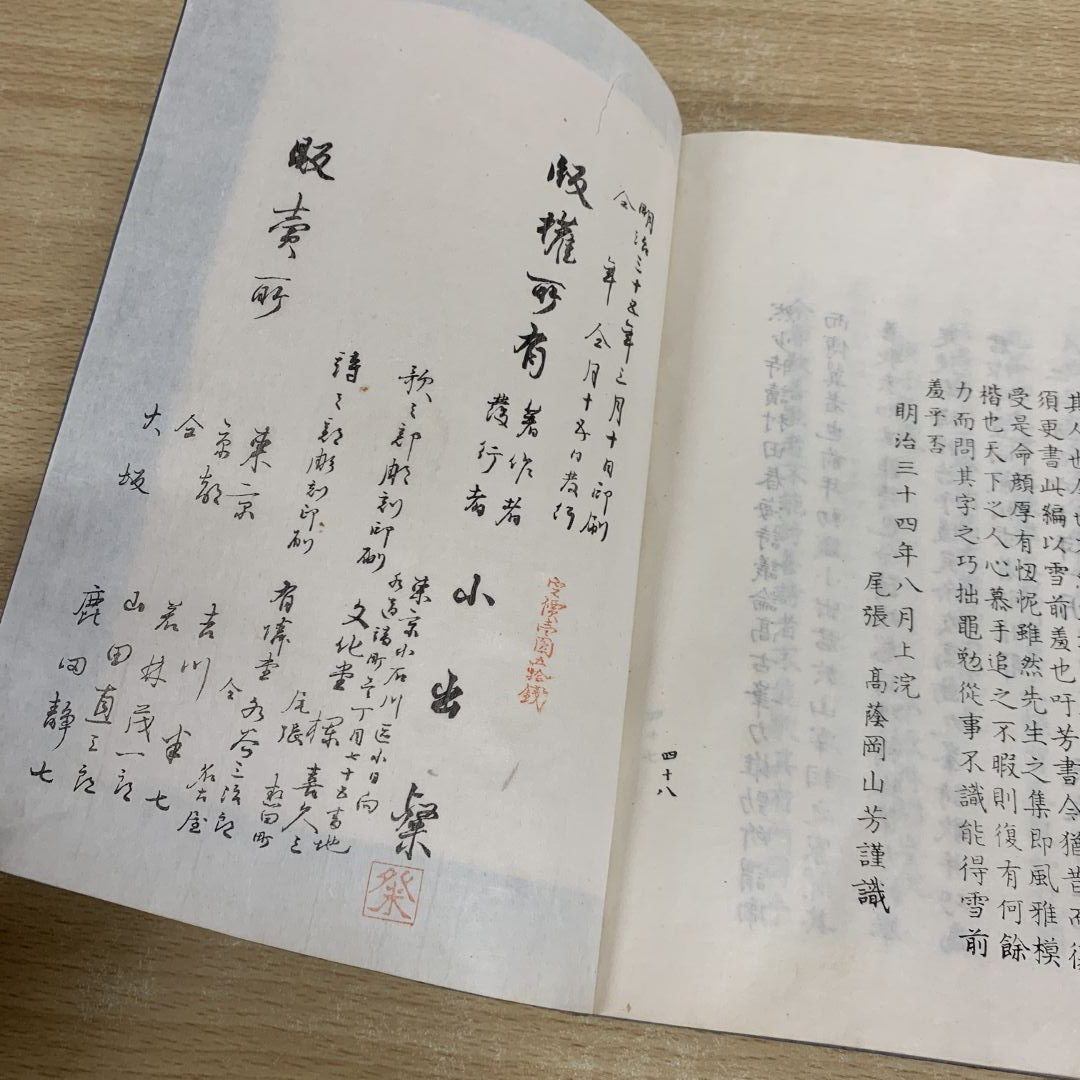 須更書此編以雪前羞也吁芳書今猶昔而
受是命顔厚有忸怩雖然先生之集即風雅模
楷也天下之人心慕手追之不暇則復有何餘
力而問其字之巧拙黽勉從事不識能得雪前
羞乎否
明治三十四年八月上浣
尾張 高蔭岡山芳謹識
四十八
明治三十五年三月十日印刷
仝 年 仝月十五日發行
版權所有
定價壹圓五拾錢
著作者
發行者
小出粲
東京小石川区小日向
水道端町壱丁目七十五番地
歌之部彫刻印刷
文化堂 喜久三
詩之部彫刻印刷
有隣堂
尾張
販賣所
東京 吉川半七
京都 若林茂一郎
仝 山田直三郎
大坂 鹿田静七